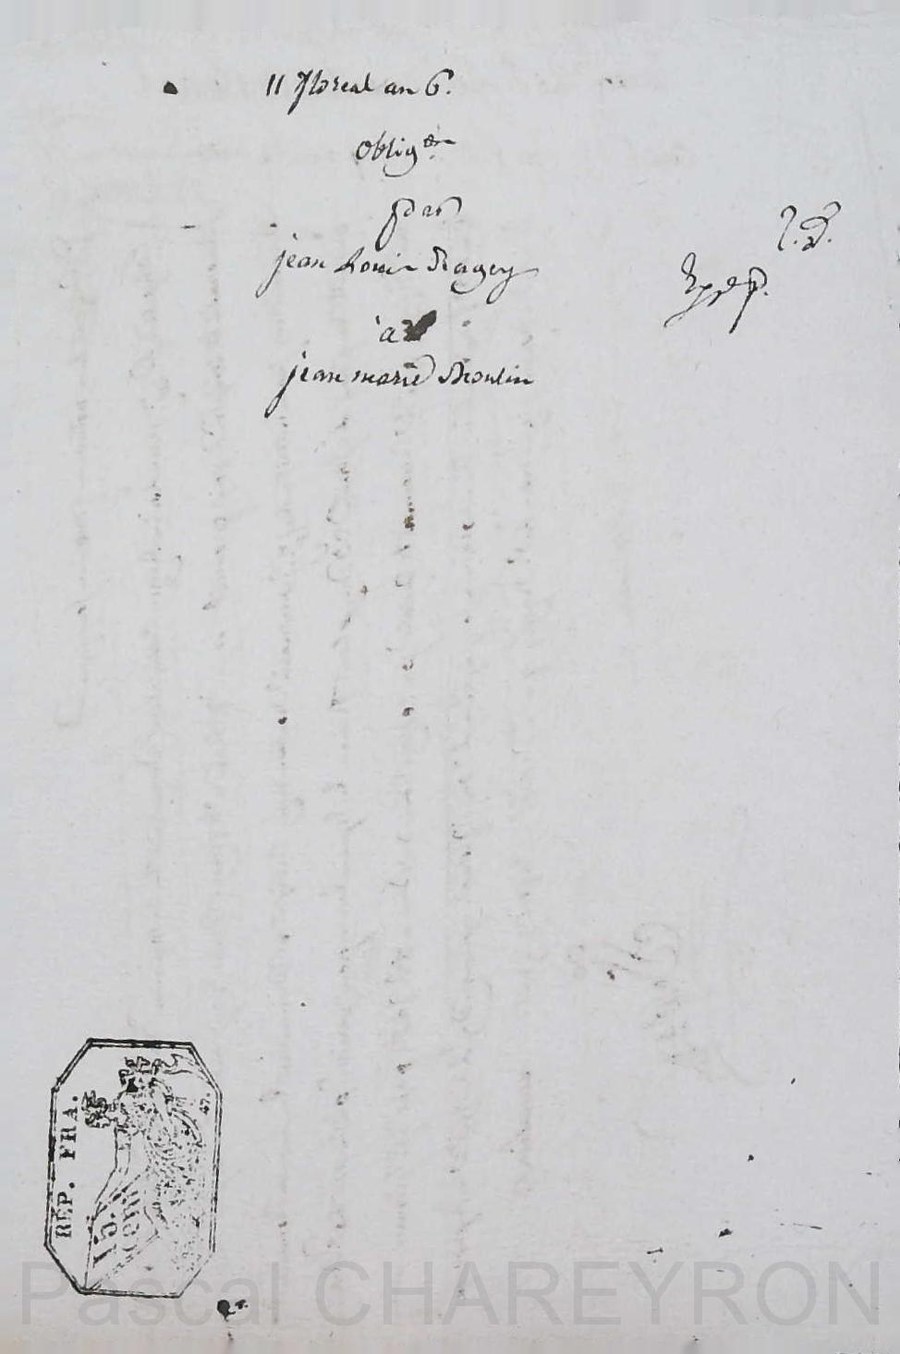 11 floreal an 6.
oblig.on
par
jean Louis Ragey
à
jean marie Moulin
RÉP. FRA.
47.
Pascal CHAREYRON